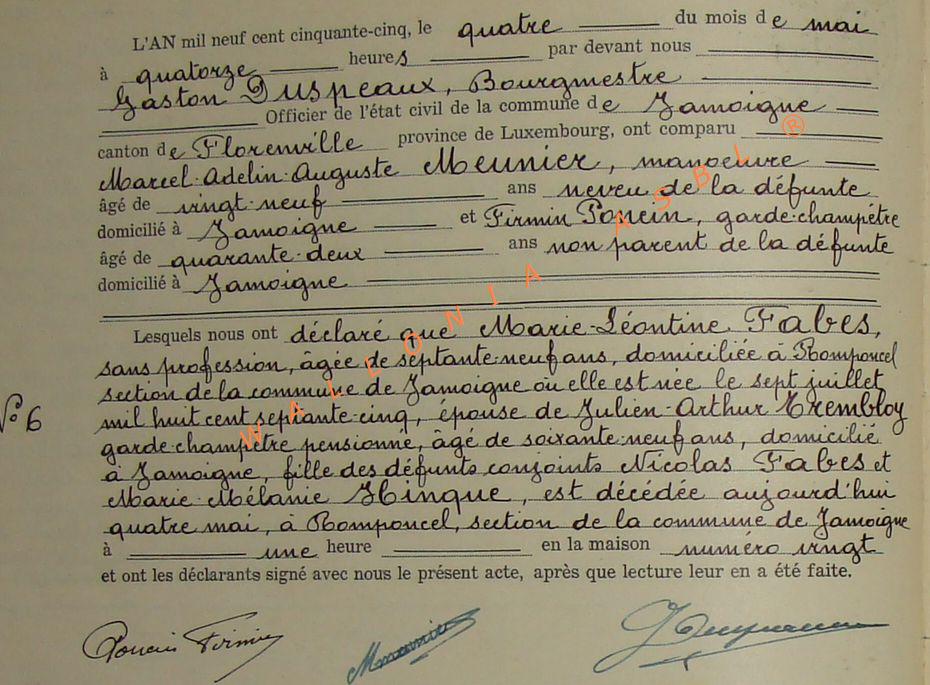 L'AN mil neuf cent cinquante-cinq, le quatre du mois de mai
à quatorze heures par devant nous
Gaston Duspeaux, Bourgmestre
Officier de l'état civil de la commune de Jamoigne
canton de Florenville province de Luxembourg, ont comparu
Marcel-Adelin-Auguste Meunier, manoeuvre
âgé de vingt-neuf ans neveu de la défunte
domicilié à Jamoigne et Firmin Poncin, garde-champêtre
âgé de quarante-deux ans non parent de la défunte
domicilié à Jamoigne
Lesquels nous ont déclaré que Marie-Léontine Fabes,
sans profession, âgée de septante-neuf ans, domiciliée à Romponcel
section de la commune de Jamoigne où elle est née le sept juillet
mil huit cent septante-cinq, épouse de Julien-Arthur Trembloy
N° 6
garde-champêtre pensionné, âgé de soixante-neuf ans, domicilié
à Jamoigne, fille des défunts conjoints Nicolas Fabes et
Marie-Mélanie Hinque, est décédée aujourd'hui
quatre mai, à Romponcel, section de la commune de Jamoigne
à une heure en la maison numéro vingt
et ont les déclarants signé avec nous le présent acte, après que lecture leur en a été faite.
Poncin Firmin Meunier
WALEONIA ASBL ®